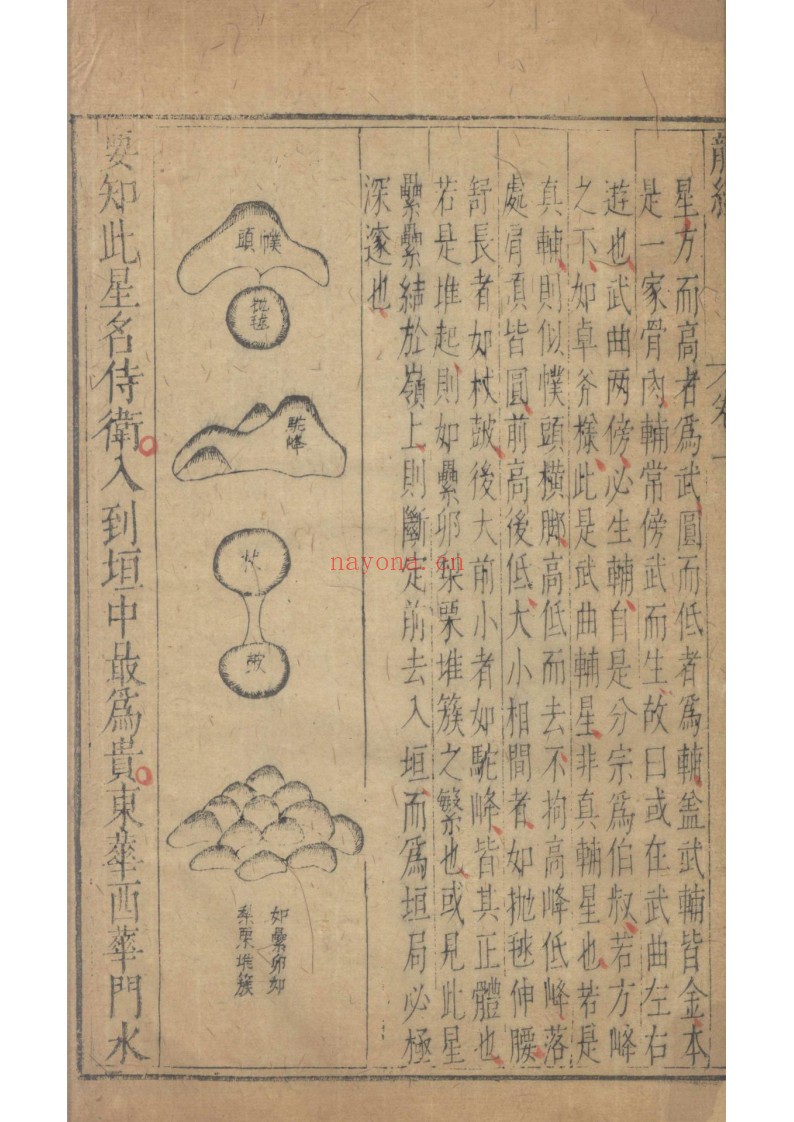 龍經
卷一
星方而高者爲武圓而低者爲輔蓋武輔皆金本
是一家骨肉輔常傍武而生故曰或在武曲左右
遊也武曲两傍必生輔自是分宗爲伯叔若方峰
之下如卓斧樣此是武曲輔星非真輔星也若是
真輔則似幞頭横脚高低而去不拘高峰低峰落
處肩項皆圓前高後低大小相間者如抛毬伸腰
舒長者如杖鼓後大前小者如駝峰皆其正體也
若是堆起則如纍卵梨栗堆簇之繁也或見此星
纍纍結於嶺上則斷定前去入垣而爲垣局必極
深邃也
幞頭
抛毬
駝峰
杖
鼓
如纍卵如
梨栗堆簇
要知此星名侍衛入到垣中最爲貴東華西華門水
nayona.cn